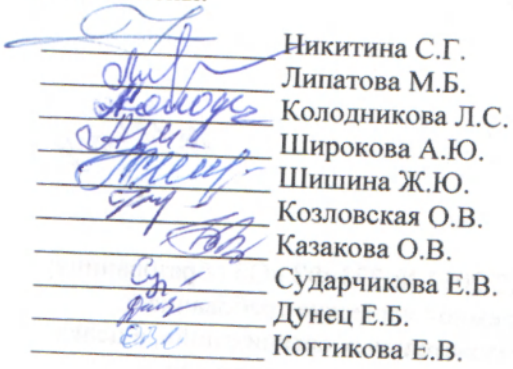 Никитина С.Г.
Липатова М.Б.
Колодникова Л.С.
Широкова А.Ю.
Шишина Ж.Ю.
Козловская О.В.
Казакова О.В.
Сударчикова Е.В.
Дунец Е.Б.
Когтикова Е.В.